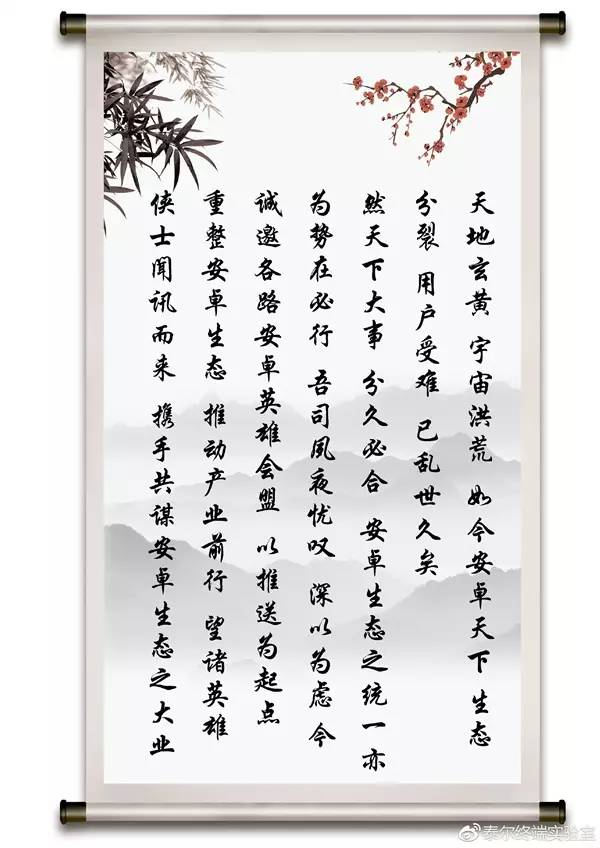 天地玄黄 宇宙洪荒 如今安卓天下 生态
分裂 用户受难 已乱世久矣
然天下大事 分久必合 安卓生态之统一亦
为势在必行 吾司夙夜忧叹 深以为虑 今
诚邀各路安卓英雄会盟 以推送为起点
重整安卓生态 推动产业前行 望诸英雄
侠士闻讯而来 携手共谋安卓生态之大业
泰尔终端实验室